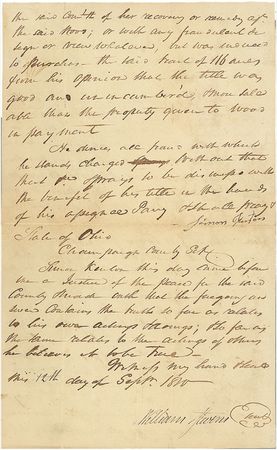 the said Com^th of her recovery or remedy ag^t
the said Wood; or with any fraudulent de
sign or view whatever, but was induced
to purchase the said tract of 116 acres
from his opinion that the title was
good and unincumbered, & more sale
able than the property given to Wood
in payment
He denies all fraud with which
he stands charged & without that
that prays to be dismissed with
the benefit of his title in the hands
of his assignee & shall pray &
Simon Kenton
State of Ohio
Champaign County Sct.
Simon Kenton this day came before
me a Justice of the peace for the said
County & made oath that the foregoing an
swer contains the truth so far as relates
to his own actings & doings; & so far as
the same relates to the actings of others
he believes it to be true
Witness my hand & seal
this 12th day of Sept^r 1810
William Stevens Seal